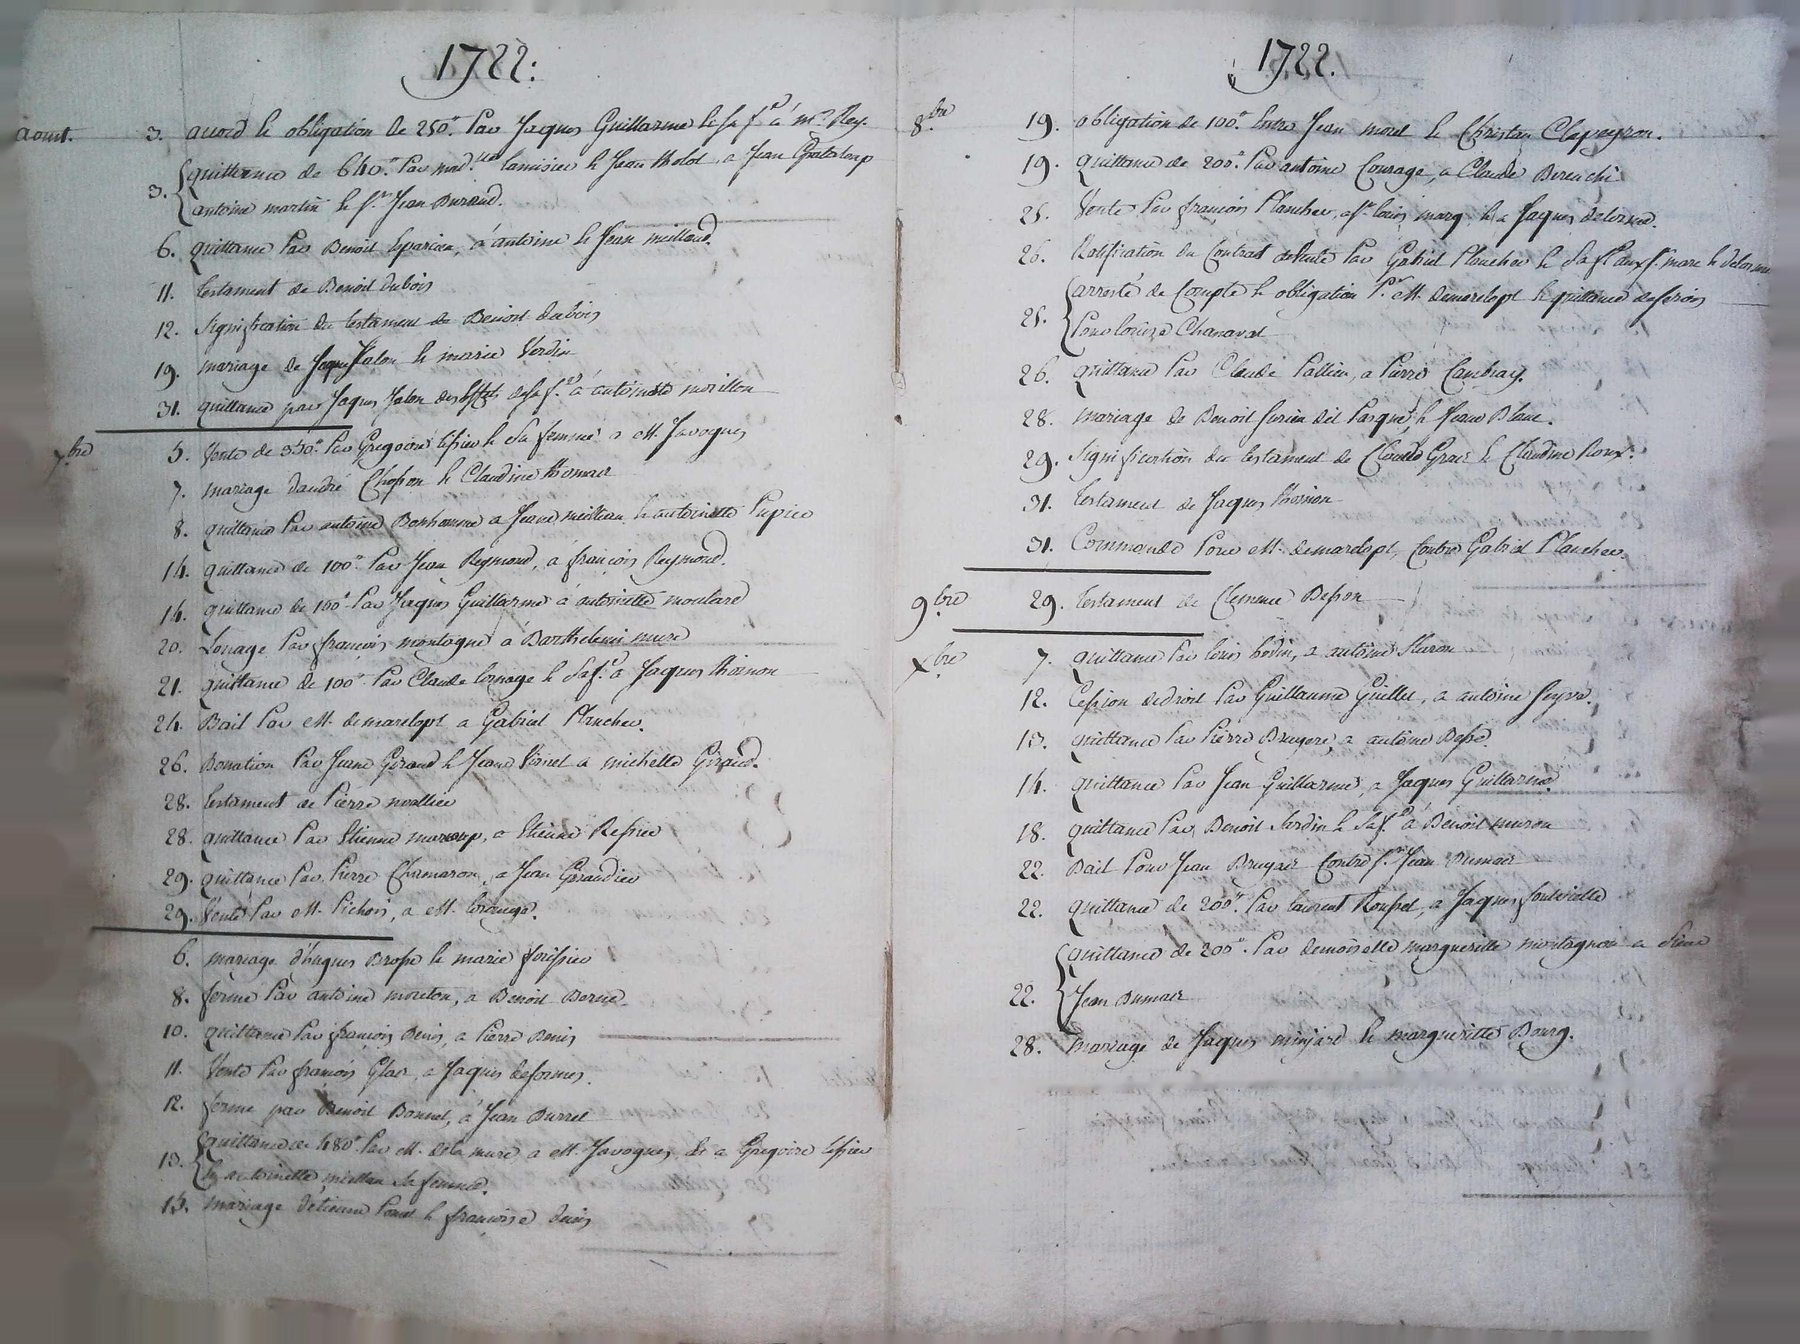 1722:
aoust. 3. accord et obligation de 250# par Jaques Guillarme et sa f.e à m.e Rey.
3. quittance de 640# par mad.lle et Jean Molol, a Jean Grateloup
antoine martin et s.r Jean Durand.
6. quittance par Benoit, à antoine et Jean meilland.
11. testament de Benoit dubois
12. Signification du testament de Benoit dubois
19. mariage de Jaques Jalon et marie Verdier
31. quittance par Jaques Jalon des effets de sa f.e à antoinette morillon
7.bre 5. Vente de 350# par Gregoire et sa femme a M. Javogues
7. mariage dandré Chosson et Claudine Thomas
8. quittance par antoine Bonhomme a Jean et antoinette Pupier
14. quittance de 100# par Jean Reymond, à françois Reymond.
14. quittance de 100# par Jaques Guillarme à antoinette moulard
20. Louage par françois montagne à Barthelemi mure
21. quittance de 100# par Claude et sa f.e à Jaques Thoinon
24. Bail par M. demarclopt a Gabriel Plancher.
26. Donation par Jeane Giraud et Jeane a michelle Giraud.
28. testament de Pierre
28. quittance par Etienne, a Etienne
29. quittance par Pierre Charmaron, a Jean Giraudier
29. Vente par M. Pichon, a M.
6. mariage d'hugues Brosse et marie
8. ferme par antoine moreton, a Benoit
10. quittance par françois Denis, a Pierre Denis
11. Vente par françois, a Jaques
12. ferme par Benoit Bonnet, à Jean Durret
13. quittance de 480# par M. de la mure a M. Javogues, et a Gregoire
et antoinette sa femme.
15. mariage d'étienne et françoise denis
1722.
8.bre 19. obligation de 100# entre Jean morel et Christan Clapeyron.
19. quittance de 200# par antoine Courage, a Claude
25. Vente par françois Plancher, a s.r louis marq et a Jaques delorme.
26. Ratification du Contrat de Vente par Gabriel Plancher et sa f. aux s.rs marc et delorme
25. arresté de Compte et obligation p.r M. demarclopt et quittance
Pour Chanavat
26. quittance par Claude Pallier, a Pierre Cambray.
28. mariage de Benoit dit Pasquet, et Jeane Blanc.
29. Signification du testament de Claude et Claudine Roux.
31. testament de Jaques Thoinon
31. Commande pour M. demarclopt, Contre Gabriel Plancher.
9.bre 29. testament de Clemence Besson
X.bre 7. quittance par louis, a antoine
12. Cession de droit par Guillaume Guillet, a antoine
13. quittance par Pierre Bruyere, a antoine Besse.
14. quittance par Jean Guillarme, a Jaques Guillarme.
18. quittance par Benoit Jardin et sa f.e à Benoit muron
22. Bail pour Jean Bruyas Contre s.r Jean Dumas
22. quittance de 200# par laurent, a Jaques
22. quittance de 200# par demoiselle margueritte montagnon a sieur
Jean Dumas
28. mariage de Jaques minjard et margueritte Bourg.